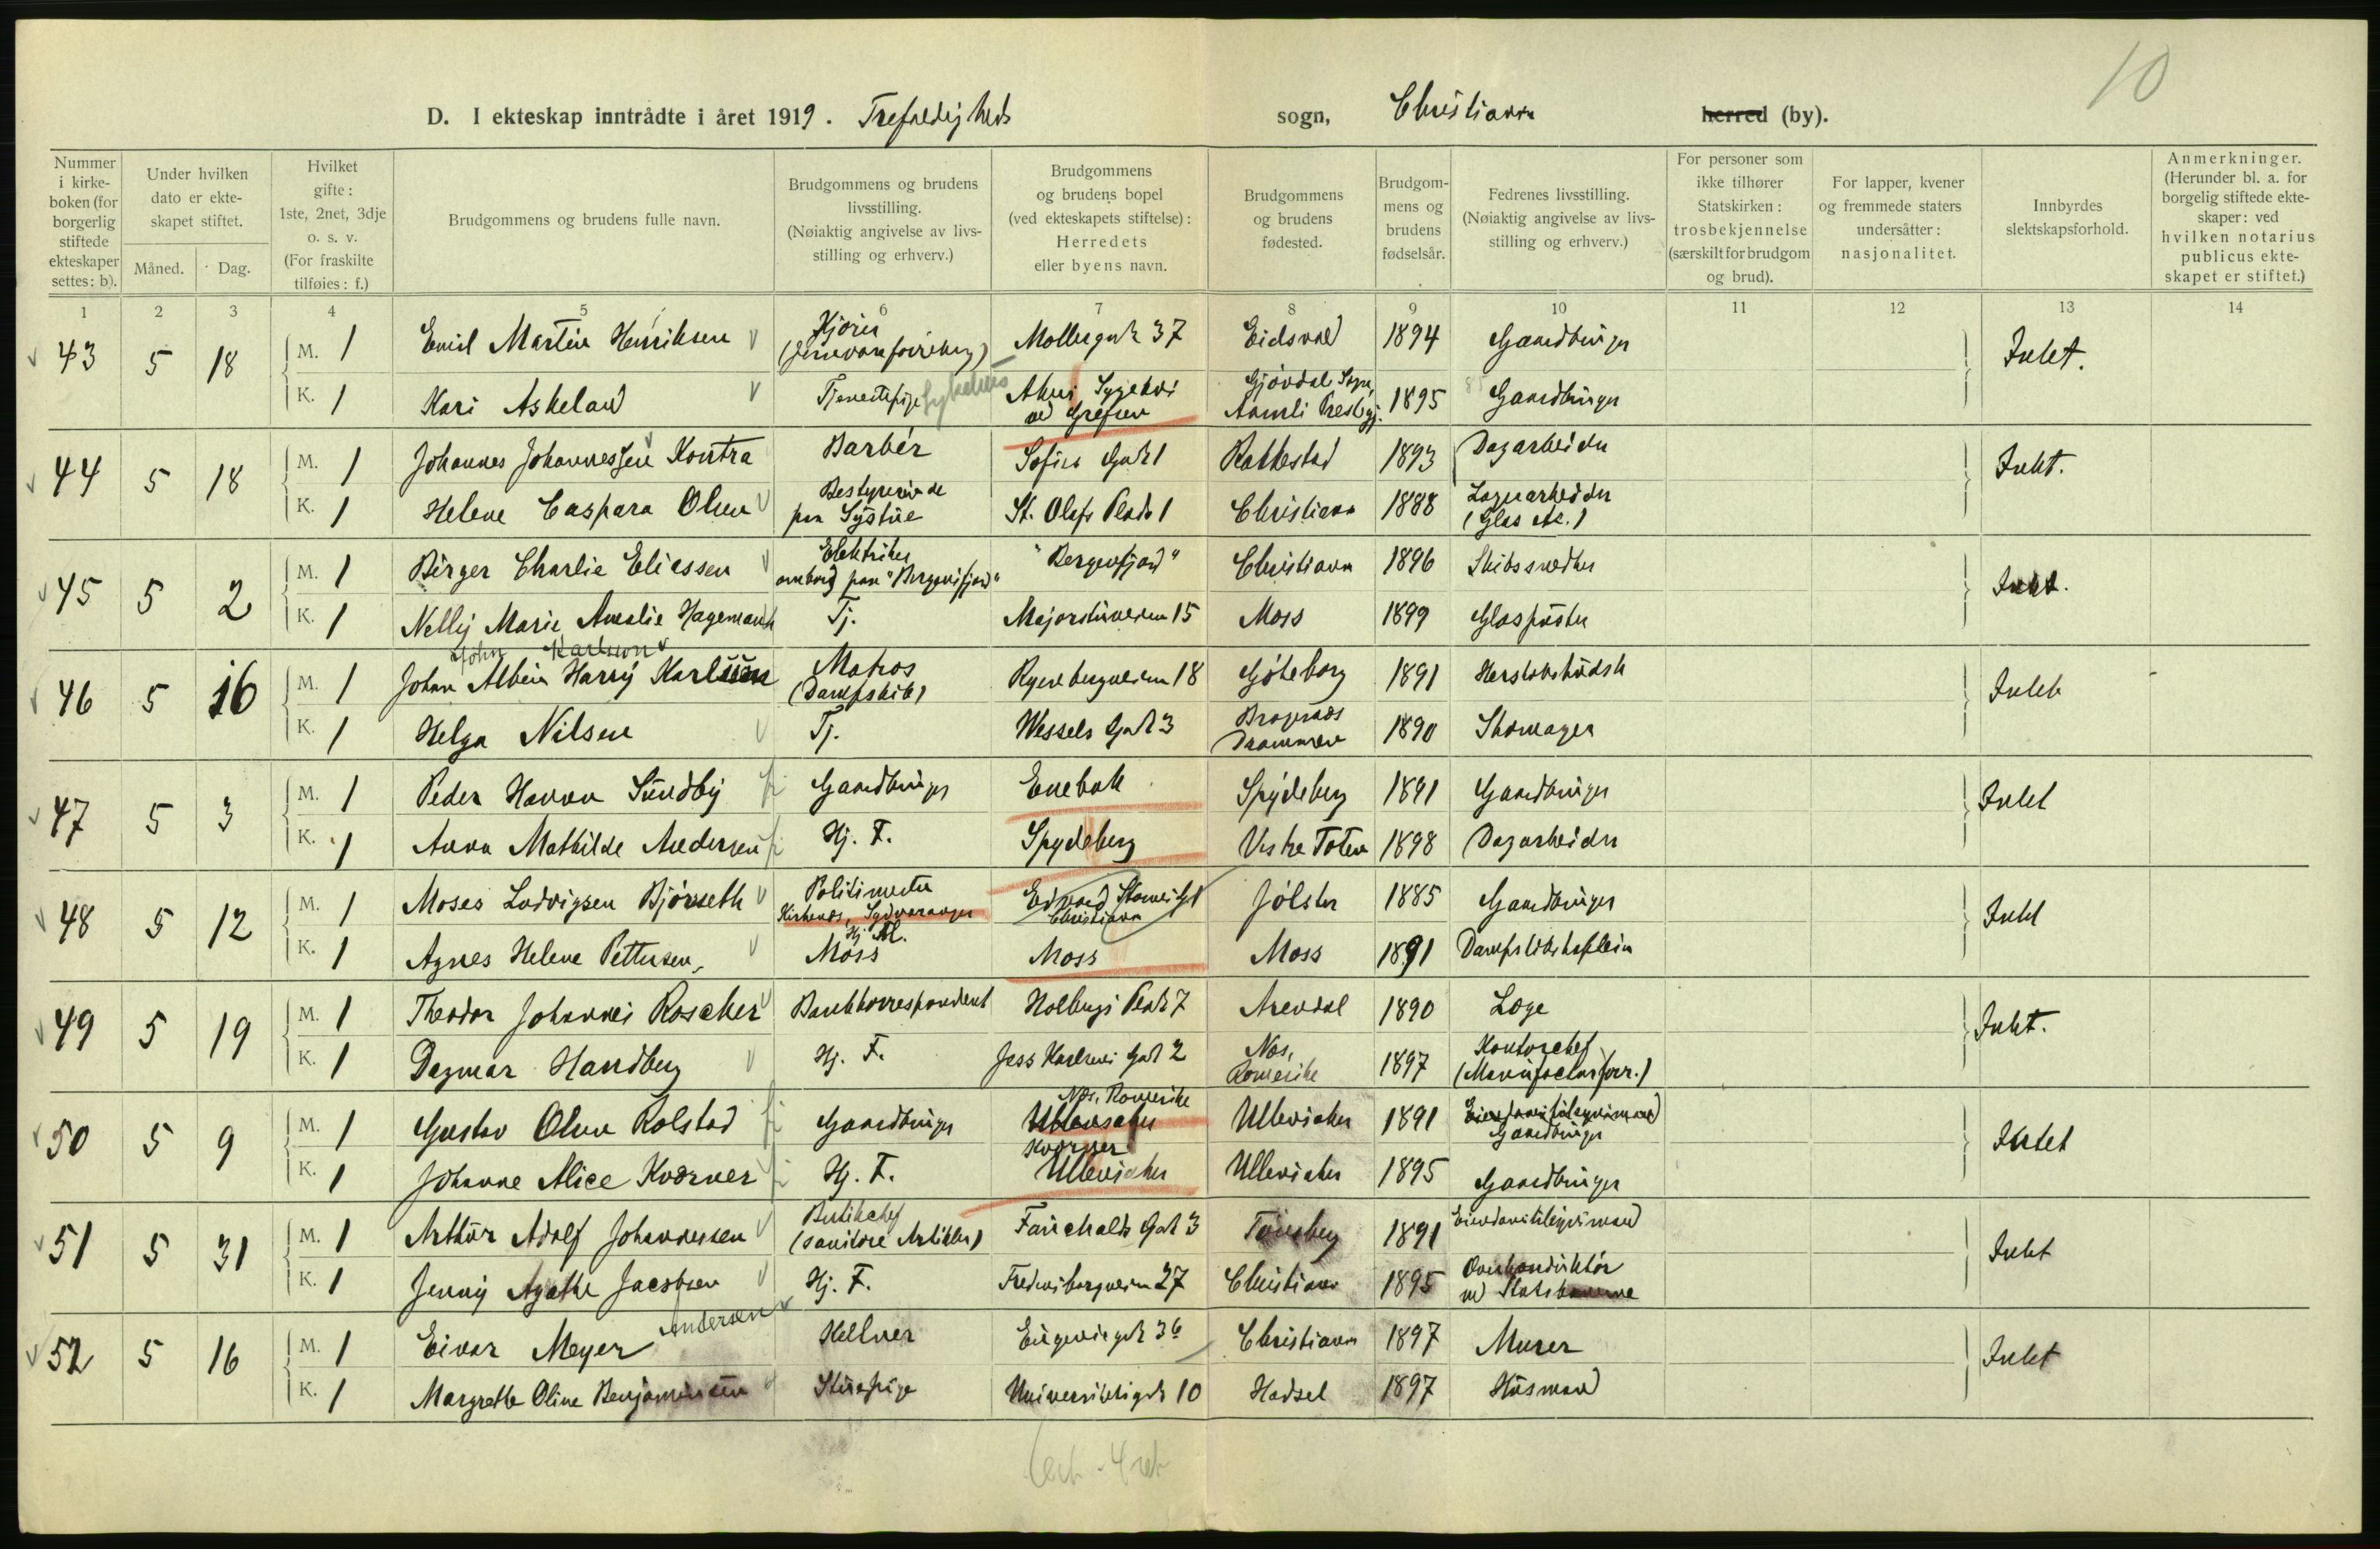 10
D. I ekteskap inntrådte i året 1919. Trefoldigheds sogn, Christiania herred (by).
Nummer i kirkeboken (for borgerlig stiftede ekteskaper settes: b).
Under hvilken dato er ekteskapet stiftet.
Måned. Dag.
Hvilket gifte: 1ste, 2net, 3dje o. s. v. (For fraskilte tilføies: f.)
Brudgommens og brudens fulle navn.
Brudgommens og brudens livsstilling. (Nøiaktig angivelse av livsstilling og erhverv.)
Brudgommens og brudens bopel (ved ekteskapets stiftelse): Herredets eller byens navn.
Brudgommens og brudens fødested.
Brudgommens og brudens fødselsår.
Fedrenes livsstilling. (Nøiaktig angivelse av livsstilling og erhverv.)
For personer som ikke tilhører Statskirken: trosbekjennelse (særskilt for brudgom og brud).
For lapper, kvener og fremmede staters undersåtter: nasjonalitet.
Innbyrdes slektskapsforhold.
Anmerkninger. (Herunder bl. a. for borgelig stiftede ekteskaper: ved hvilken notarius publicus ekteskapet er stiftet.)
1 2 3 4 5 6 7 8 9 10 11 12 13 14
43 5 18 M. 1 Emil Martin Henriksen Kjører Møllergat 37 Eidsvold 1894 Gaardbruger Intet.
K. 1 Kari Askeland Tjenestepige Akers Sygehus ved Grefsen Gjövdal Sogn, Aamli Prestgj. 1895 Gaardbruger
44 5 18 M. 1 Johannes Johannessen Kontra Barbér Sofies Gade 1 Rakkestad 1893 Dagarbeider Intet.
K. 1 Helene Caspara Olsen Bestyrerinde paa Systue St. Olafs Plads 1 Christiania 1888 Lagerarbeider (Glas etc.)
45 5 2 M. 1 Birger Charlie Eliassen Elektriker ombord paa "Bergensfjord" "Bergensfjord" Christiania 1896 Skibssnedker Intet.
K. 1 Nelly Marie Amalie Hagemann Tj. Majorstuveien 15 Moss 1899 Glaspuster
John Karlsson
46 5 16 M. 1 Johan Albin Harry Karlsson Matros (Dampskib) Ryenbergveien 18 Göteborg 1891 Intet
K. 1 Helga Nilsen Tj. Wessels Gade 3 Bragernæs Drammen 1890 Skomager
47 5 3 M. 1 Peder Hannan Sundby Gaardbruger Enebak Spydeberg 1891 Gaardbruger Intet
K. 1 Anna Mathilde Andersen Hj. F. Spydeberg Vestre Toten 1898 Dagarbeider
48 5 12 M. 1 Moses Ludvigsen Bjørseth Politimester Kirkenes, Sydvaranger Edvard Stormsgt Christiania Jölster 1885 Gaardbruger Intet
K. 1 Agnes Helene Pettersen, Hj. M. Moss Moss Moss 1891 Dampskibskaptein
49 5 19 M. 1 Theodor Johannes Roscher Bankkorrespondent Holbergs Plads 7 Arendal 1890 Læge Intet.
K. 1 Dagmar Handberg Hj. F. Jess Karlsens Gade 2 Nes, Romerike 1897 Kontorchef (Manufacturforr.)
50 5 9 M. 1 Gustav Olsen Rolstad Gaardbruger Nes, Romerike Ullensaker Ullensaker 1891 Gaardbruger Intet
K. 1 Johanne Alice Kværner Hj. F. Kværner Ullensaker Ullensaker 1895 Gaardbruger
51 5 31 M. 1 Arthur Adolf Johannessen Butikchef (sanitære Artikler) Fauchalds Gade 3 Tønsberg 1891 Eiendomsmægler Intet
K. 1 Jenny Agathe Jacobsen Hj. F. Fredensborgveien 27 Christiania 1895 Overkonduktør ved Statsbanerne
52 5 16 M. 1 Einar Meyer Andersen Kellner Eugeniesgate 36 Christiania 1897 Murer Intet
K. 1 Margrethe Oline Benjaminsen Stuepige Universitetsgade 10 Hadsel 1897 Husmand